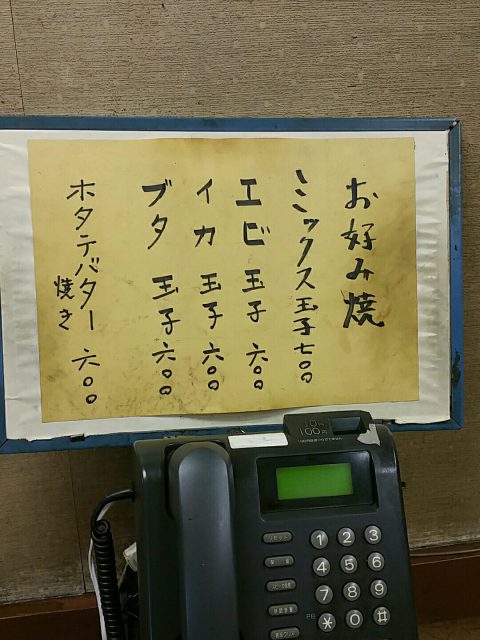 お好み焼
ミックス玉子七〇〇
エビ玉子六〇〇
イカ玉子六〇〇
ブタ玉子六〇〇
ホタテバター焼き六〇〇
10円
100円
リセット
1 2 3
4 5 6
7 8 9
PB * 0 #